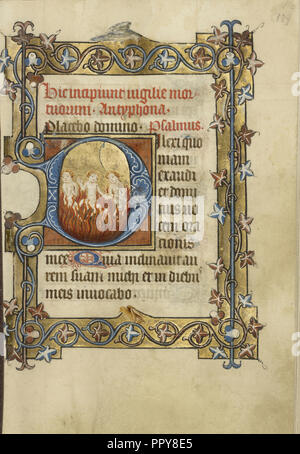 Hic incipiunt vigilie mor
tuorum. Antyphona.
Placebo domino. Psalmus.
Dilexi quo
niam
exaudi
et domi
nus vo
cem ora
tionis
mee Quia inclinauit au
rem suam michi et in diebus
meis inuocabo.
alamy
www.alamy.com
PPY8E5